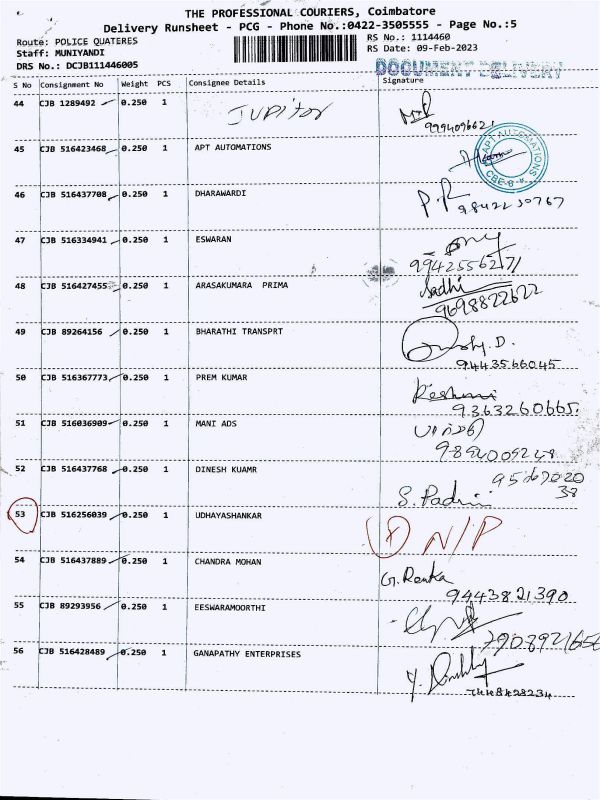 THE PROFESSIONAL COURIERS, Coimbatore
Delivery Runsheet - PCG - Phone No.:0422-3505555 - Page No.:5
Route: POLICE QUATERES
Staff: MUNIYANDI
DRS No.: DCJB111446005
RS No.: 1114460
RS Date: 09-Feb-2023
DOCUMENT DELIVERY
S No Consignment No Weight PCS Consignee Details Signature
44 CJB 1289492 0.250 1 JUPITOR
45 CJB 516423468 0.250 1 APT AUTOMATIONS
APT AUTOMATIONS CBE-6
46 CJB 516437708 0.250 1 DHARAWARDI
9842230767
47 CJB 516334941 0.250 1 ESWARAN
9942556271
48 CJB 516427455 0.250 1 ARASAKUMARA PRIMA Sadhi
9698822622
49 CJB 89264156 0.250 1 BHARATHI TRANSPRT
9443566045
50 CJB 516367773 0.250 1 PREM KUMAR Reshmi
9363260665.
51 CJB 516036909 0.250 1 MANI ADS
9894009248
52 CJB 516437768 0.250 1 DINESH KUAMR
9567020
38
S. Padmini
53 CJB 516256039 0.250 1 UDHAYASHANKAR N/P
54 CJB 516437889 0.250 1 CHANDRA MOHAN G. Renka
9443821390
55 CJB 89293956 0.250 1 EESWARAMOORTHI
7908921656
56 CJB 516428489 0.250 1 GANAPATHY ENTERPRISES
7448428234